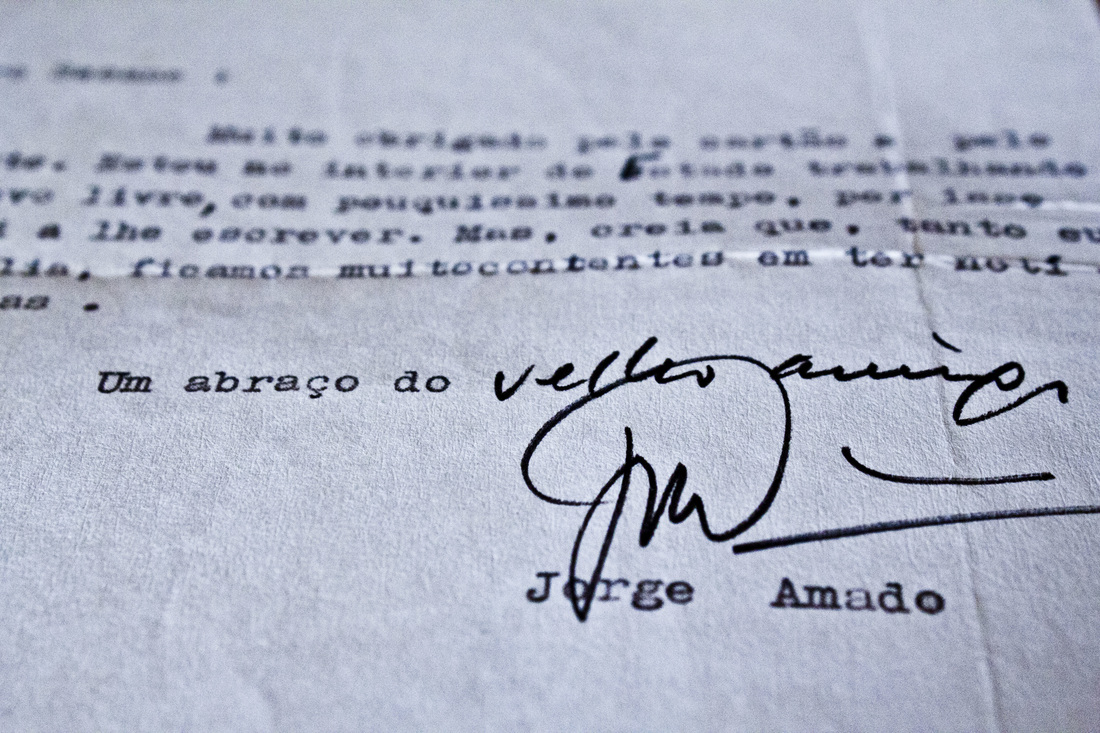 Muito obrigado pelo cartão e pelo
te. Estou no interior do Estado trabalhando
vo livro, com pouquissimo tempo, por isso
i a lhe escrever. Mas, creia que, tanto eu
lia, ficamos muitocontentes em ter noti
as .
Um abraço do velho amigo
Jorge Amado